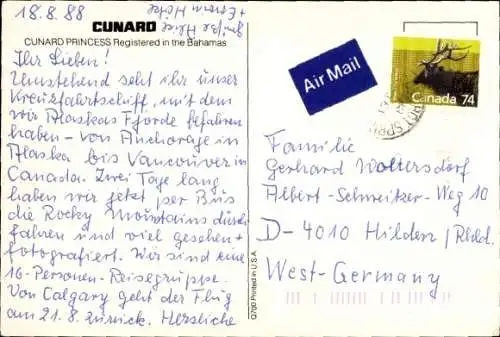 18.8.88
CUNARD
CUNARD PRINCESS Registered in the Bahamas
Ihr Lieben!
Umstehend seht ihr unser
Kreuzfahrtschiff, mit dem
wir Alaskas Fjorde befahren
haben - von Anchorage in
Alaska bis Vancouver in
Canada. Zwei Tage lang
haben wir jetzt per Bus
die Rocky Mountains durch
fahren und viel gesehen +
fotografiert. Wir sind eine
16-Personen-Reisegruppe.
Von Calgary geht der Flug
am 21.8. zurück. Herzliche
Grüße
Air Mail
Canada 74
Familie
Gerhard Woltersdorf
Albert-Schweitzer-Weg 10
D-4010 Hilden/Rhld.
West-Germany
Printed in U.S.A.